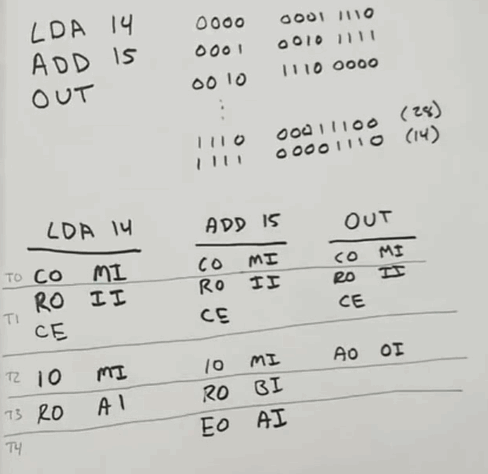 LDA 14 0000 0001 1110
ADD 15 0001 0010 1111
OUT 0010 1110 0000
⋮
1110 00011100 (28)
1111 00001110 (14)
LDA 14 ADD 15 OUT
T0 CO MI CO MI CO MI
RO II RO II RO II
T1 CE CE CE
T2 IO MI IO MI AO OI
T3 RO AI RO BI
T4 EO AI